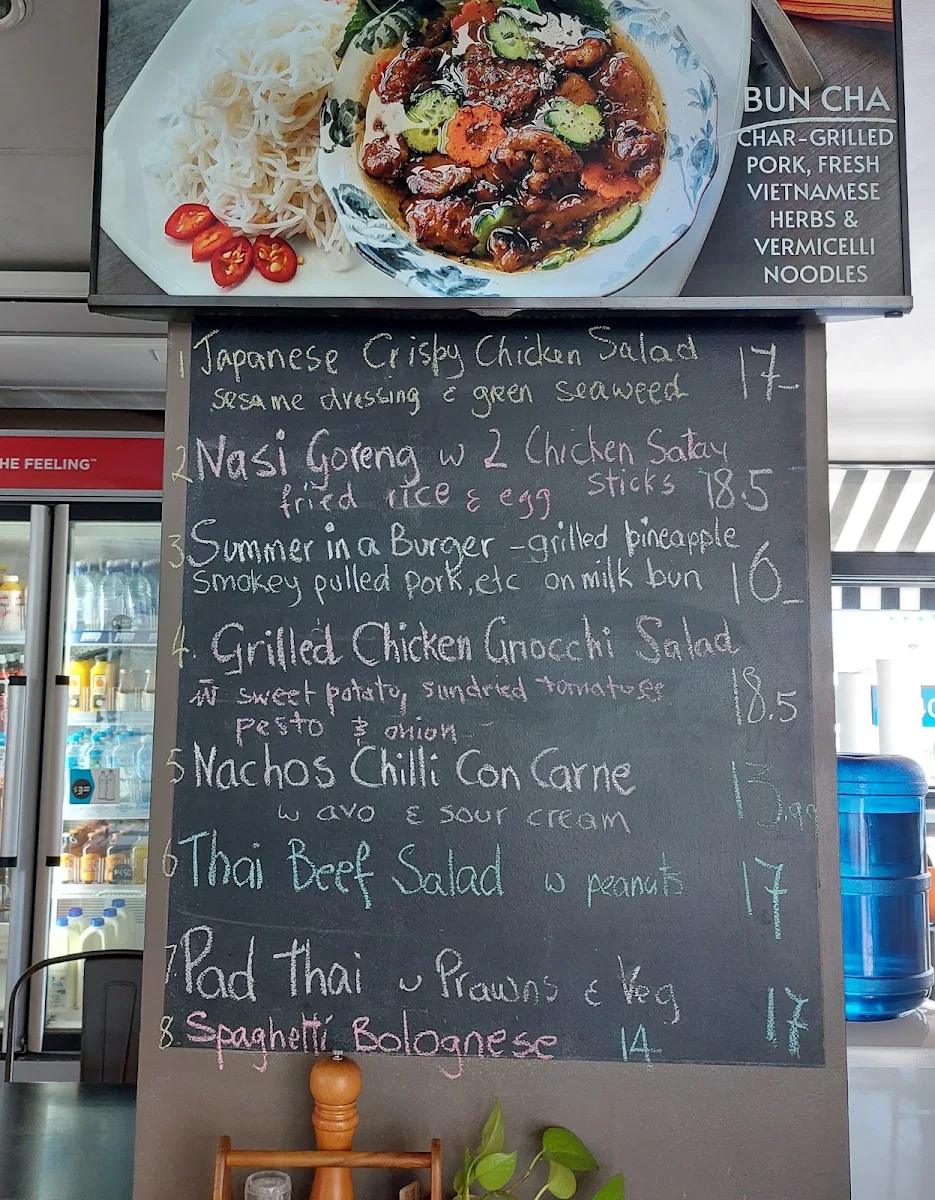 BUN CHA
CHAR-GRILLED
PORK, FRESH
VIETNAMESE
HERBS &
VERMICELLI
NOODLES
1 Japanese Crispy Chicken Salad 17-
sesame dressing & green seaweed
2 Nasi Goreng w 2 Chicken Satay
fried rice & egg sticks 18.5
3 Summer in a Burger - grilled pineapple
smokey pulled pork, etc on milk bun 16-
4. Grilled Chicken Gnocchi Salad
w sweet potato, sundried tomatoes 18.5
pesto & onion
5 Nachos Chilli Con Carne 13.99
w avo & sour cream
6 Thai Beef Salad w peanuts 17
7 Pad Thai w Prawns & Veg 17
8. Spaghetti Bolognese 14
HE FEELING™